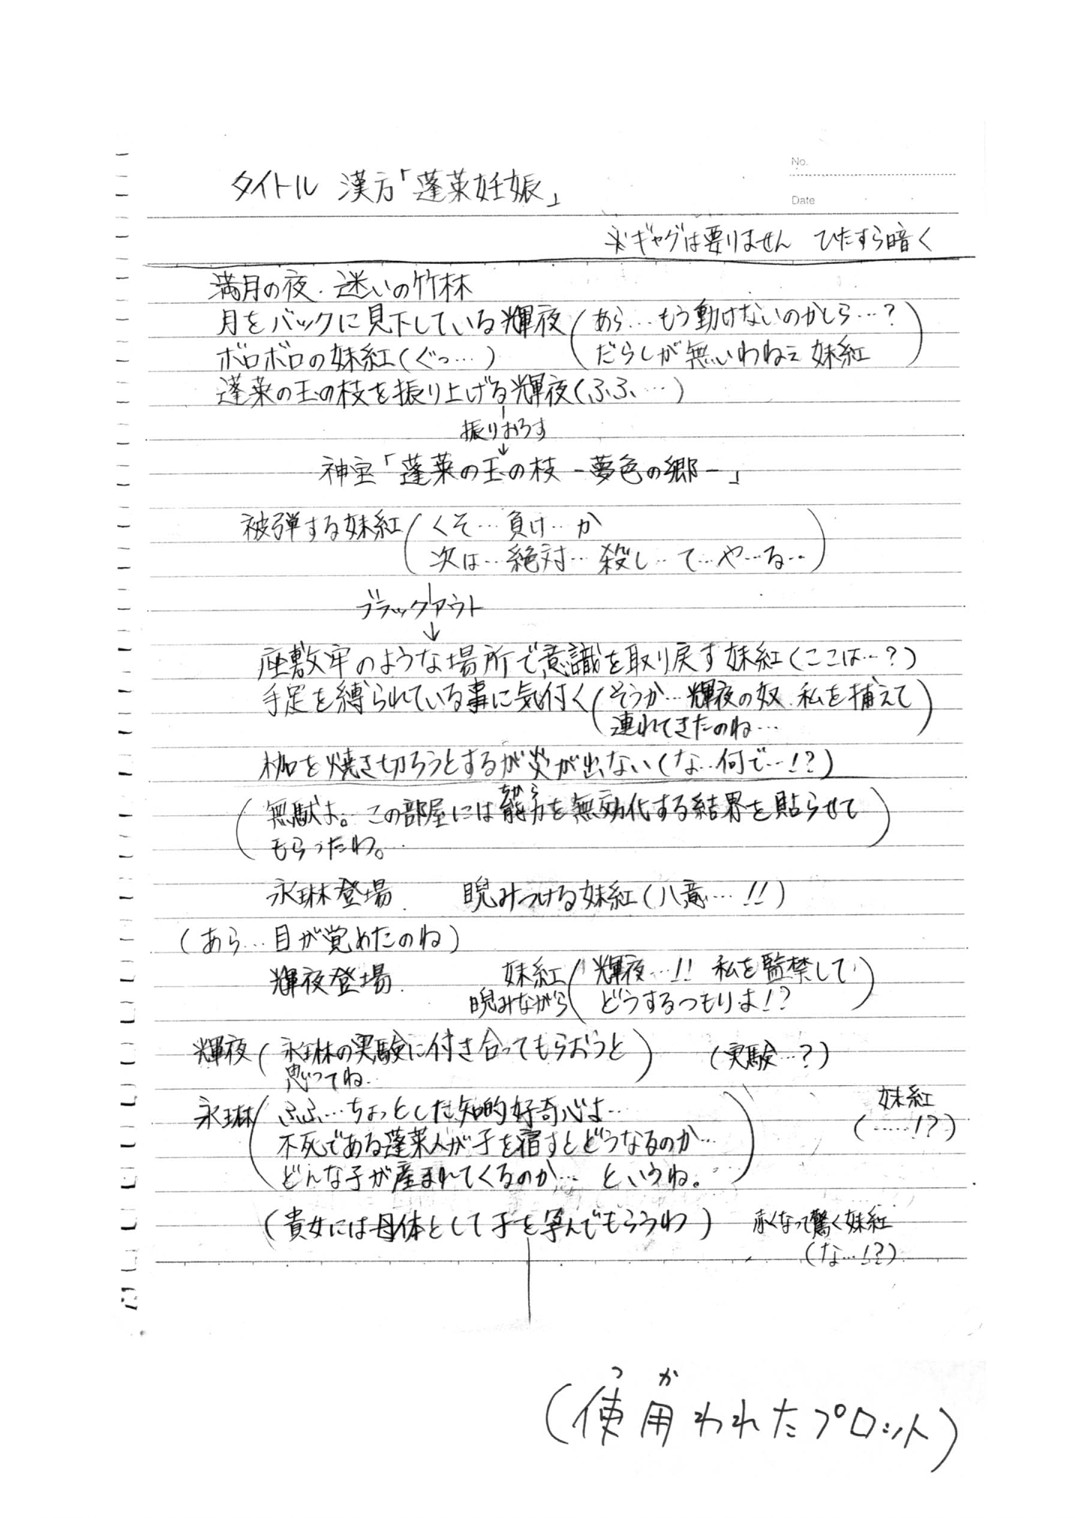 No.
タイトル 漢方「蓬莱妊娠」
Date
※ギャグは要りません ひたすら暗く
満月の夜・迷いの竹林
月をバックに見下している輝夜(あら…もう動けないのかしら…?
だらしが無いわねぇ妹紅)
ボロボロの妹紅(ぐっ…)
蓬莱の玉の枝を振り上げる輝夜(ふふ…)
振りおろす
神宝「蓬莱の玉の枝 -夢色の郷-」
被弾する妹紅(くそ…負け…か
次は…絶対…殺し…て…や…る…)
ブラックアウト
↓
座敷牢のような場所で意識を取り戻す妹紅(ここは…?)
手足を縛られている事に気付く(そうか…輝夜の奴、私を捕えて
連れてきたのね…)
枷を焼き切ろうとするが炎が出ない(な…何で…!?)
(無駄よ。この部屋には能力を無効化する結界を貼らせて
もらったわ。)
永琳登場. 睨みつける妹紅(八意…!!)
(あら…目が覚めたのね)
輝夜登場. 妹紅(輝夜…!! 私を監禁して
睨みながら どうするつもりよ!?)
輝夜(永琳の実験に付き合ってもらおうと
思ってね…) (実験…?)
永琳(ふふ…ちょっとした知的好奇心よ…
不死である蓬莱人が子を宿すとどうなるのか…
どんな子が産まれてくるのか… というね。)
妹紅
(……!?)
(貴女には母体として子を孕んでもらうわ) 赤くなって驚く妹紅
(な…!?)
(使用われたプロット)